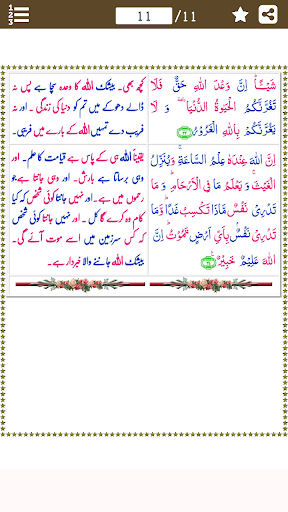 11 /11
شَيْـًٔا ؕ اِنَّ وَعْدَ اللّٰهِ حَقٌّ فَلَا
تَغُرَّنَّكُمُ الْحَيٰوةُ الدُّنْيَا ٙ وَ لَا
يَغُرَّنَّكُمْ بِاللّٰهِ الْغَرُوْرُ
اِنَّ اللّٰهَ عِنْدَهٗ عِلْمُ السَّاعَةِ ۚ وَيُنَزِّلُ
الْغَيْثَ ۚ وَ يَعْلَمُ مَا فِی الْاَرْحَامِ ؕ وَ مَا
تَدْرِیْ نَفْسٌ مَّاذَا تَكْسِبُ غَدًا ؕ وَ مَا
تَدْرِیْ نَفْسٌۢ بِاَیِّ اَرْضٍ تَمُوْتُ ؕ اِنَّ
اللّٰهَ عَلِيْمٌ خَبِيْرٌ
کچھ بھی۔ بیشک اللہ کا وعدہ سچا ہے پس نہ
ڈالے دھوکے میں تم کو دنیا کی زندگی۔ اور نہ
فریب دے تمہیں اللہ کے بارے میں فریبی۔
یقیناً اللہ ہی کے پاس ہے قیامت کا علم۔ اور
وہی برساتا ہے بارش۔ اور وہی جانتا ہے جو
رحموں میں ہے۔ اور نہیں جانتا کوئی شخص کہ کیا
کام وہ کرے گا کل۔ اور نہیں جانتا کوئی شخص
کہ کس سرزمین میں اسے موت آئے گی۔
بیشک اللہ جاننے والا خبردار ہے۔